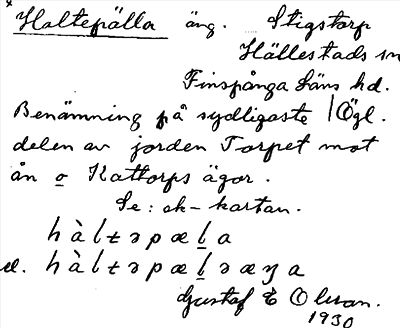 Haltepälla äng. Stigstorp
Hällestads sn
Finspånga läns hd.
Benämning på sydligaste | Ögl.
delen av jorden Torpet mot
ån o Kattorps ägor.
Se: ek-kartan.
hàltəpæḷa
el. hàltəpæḷəæŋa
Gustaf E Olsson.
1930